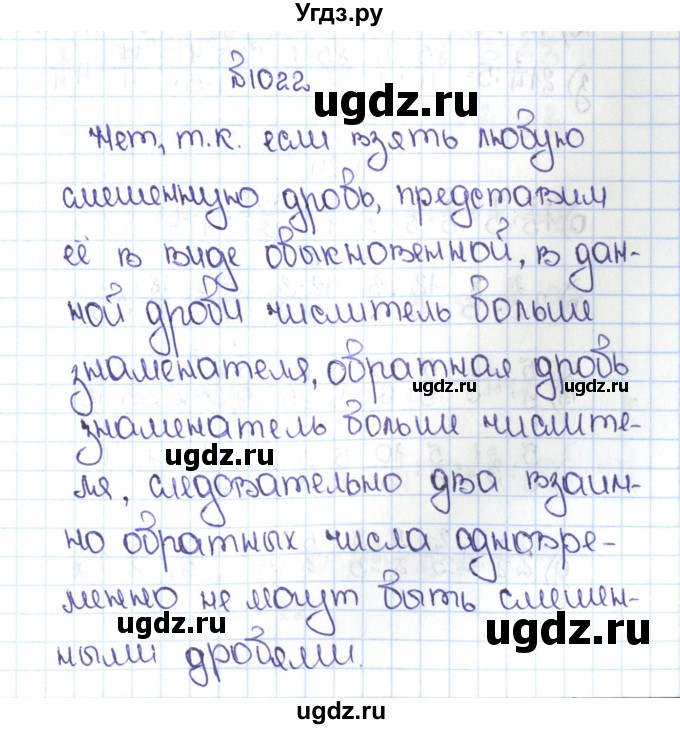 Угдз.ру
№1022
ugdz.ru
Нет, т.к. если взять любую
смешенную дробь, представим
её в виде обыкновенной, в дан-
ной дроби числитель больше
знаменателя, обратная дробь
ugdz.ru ugdz.ru
знаменатель больше числите-
ugdz.ru
ля, следовательно два взаим-
но обратных числа одновре-
менно не могут быть смешен-
ugdz.ru ugdz.ru
ными дробями.
ugdz.ru